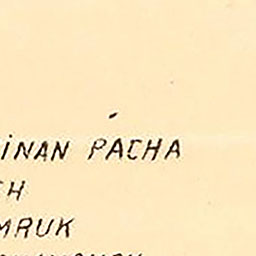 INAN PACHA
CH
MRUK